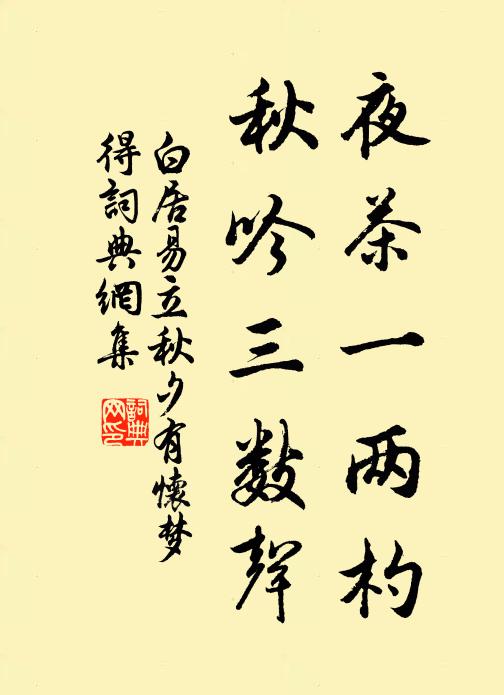 夜茶一两杓
秋吟三數聲
白居易立秋夕有懷梦
得詞典網集
詞典
网印